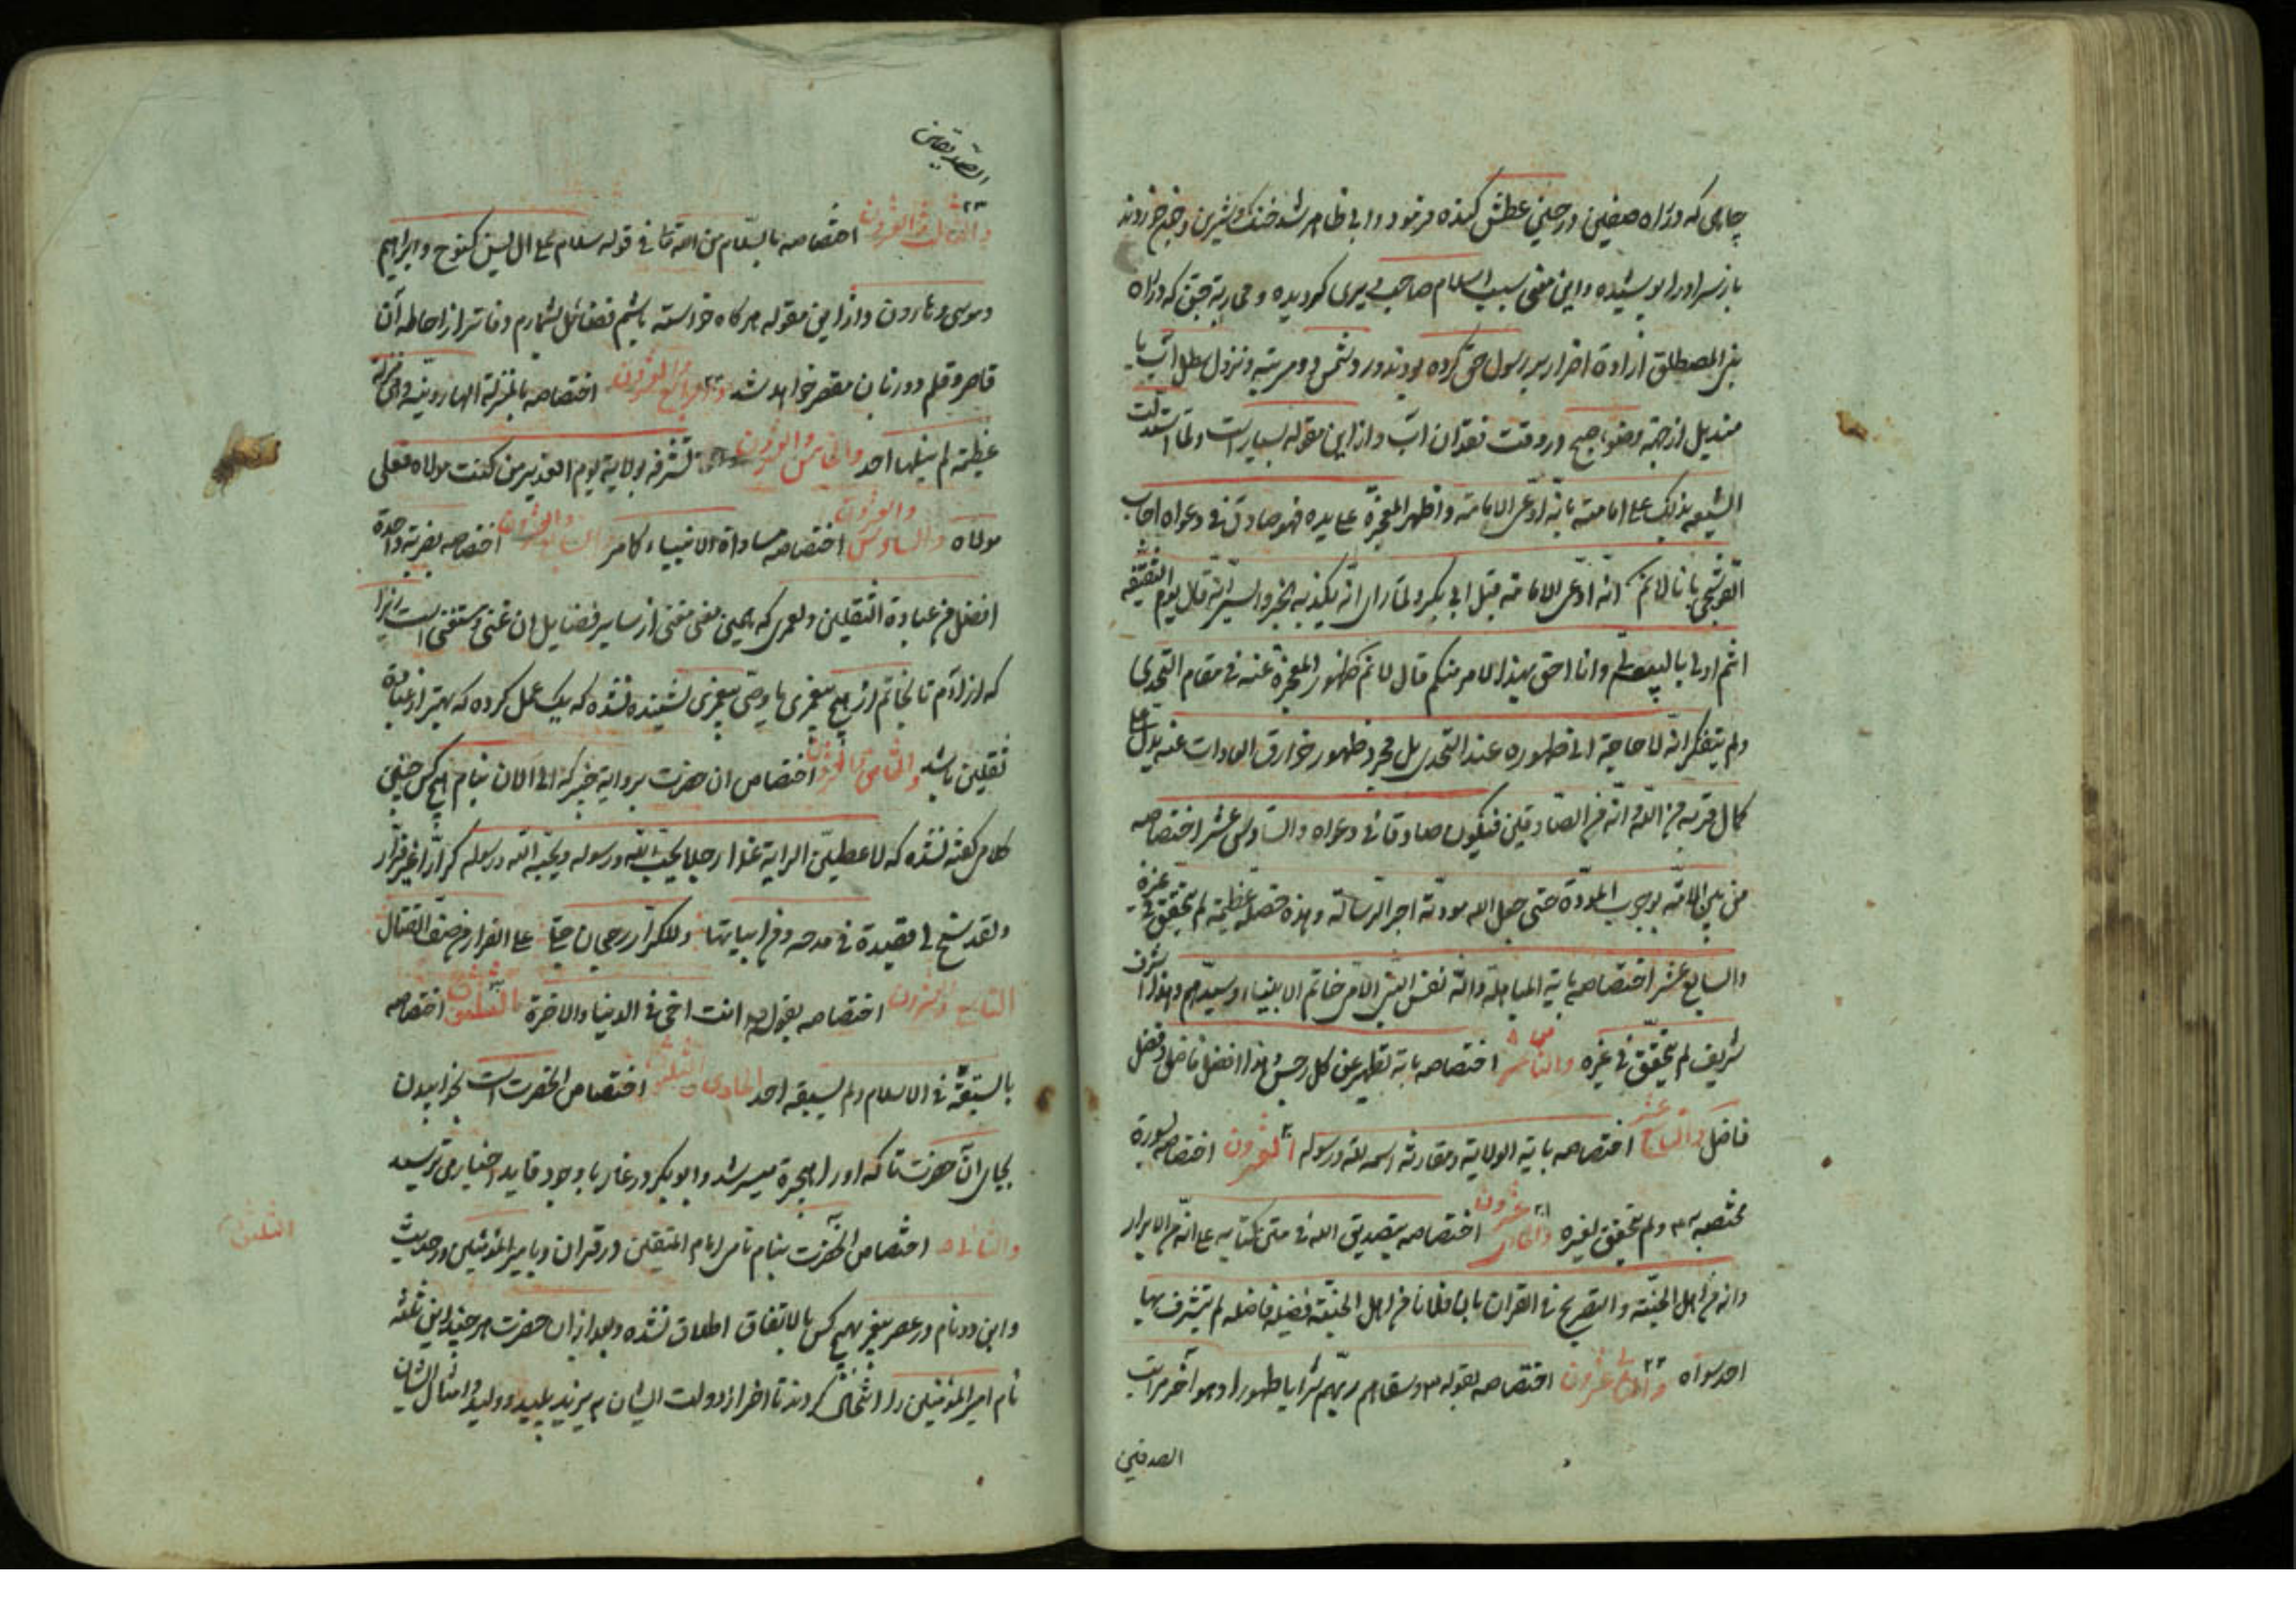 چاهی که در راه صفین در حین عطش کنده فرمود و آبی ظاهر شد خنک و شیرین و خوردند
باز سر او را پوشیده و این معنی سبب اسلام صاحب دیری گردیده و محاربه جن که در راه
بنی المصطلق اراده اضرار بر رسول حق کرده بودند و رد شمس دو مرتبه و نزول سطل آب با
مندیل از جهة وضو صبح در وقت فقدان آب و از این مقوله بسیار است و لما استدلت
الشیعه بذلک علی امامته بانه ادعی الامامة و اظهر المعجزة علی یده فهو صادق فی دعواه اجاب
القوشجی بانا لانم انه ادعی الامامة قبل ابی بکر و لما رای انه یکذبه الخبر و السیر انه قال یوم السقیفة
انتم اولی بالبیعة لی و انا احق بهذا الامر منکم قال لانم ظهور المعجزة عنه فی مقام التحدی
و لم یتفکر انه لا حاجة الی ظهوره عند التحدی بل مجرد ظهور خوارق العادات عنه یدل علی
کمال قربه من الله و انه من الصادقین فیکون صادقا فی دعواه و السادس عشر اختصاصه
من بین الامة بوجوب المودة حتی جعل الله مودته اجر الرسالة و هذه خصلة عظیمة لم یتحقق فی غیره
و السابع عشر اختصاصه بایة المباهلة و انه نفس النبی الامی خاتم الانبیاء و سیدهم و هذا شرف
شریف لم یتحقق فی غیره و الثامن عشر اختصاصه بایة تطهیر عن کل رجس و هذا افضل فاضل و فضل
فاضل و التاسع عشر اختصاصه بایة الولایة و مقارنة اسمه لله و رسوله العشرون اختصاصه بسورة
مختصة به و لم یتحقق لغیره و الحادی عشرون اختصاصه بتصدیق الله فی متن کتابه علی انه من الابرار
و انه من اهل الجنة و التصریح فی القران بان فلانا من اهل الجنة فضیلة فاضله لم یتشرف بها
احد سواه و الثانی عشرون اختصاصه بقوله و سقاهم ربهم شرابا طهورا و هو آخر مراتب
الصدقین
الصدیقین
و الثالث و العشرون اختصاصه بالسلام من الله تعا فی قوله سلام علی ال یس کنوح و ابراهیم
و موسی و هارون و از این مقوله هر گاه خواسته باشم فضائل بشمارم دفاتر از احاطه آن
قاصر و قلم دو زبان مقصر خواهد شد و الرابع و العشرون اختصاصه بالمنزلة الهارونیة و هی منزلة
عظیمة لم ینلها احد و الخامس و العشرون تشرفه بولایة یوم الغدیر من کنت مولاه فعلی
مولاه و السادس و العشرون اختصاصه مساواة الانبیاء کامر و السابع و العشرون اختصاصه بضربة واحدة
افضل من عبادة الثقلین و لعمری که همین معنی مغنی از سایر فضایل ان غنی و مستغنی است زیرا
که از آدم تا بخاتم از هیچ پیغمبری یا وصی پیغمبری شنیده نشده که یک عمل کرده که بهتر از عبادة
ثقلین باشد و الثامن و العشرون اختصاص ان حضرت بروایة خیبر که الی الان بنام هیچ کس چنین
کلامی گفته نشده که لاعطین الرایة غدا رجلا یحب الله و رسوله و یحبه الله و رسوله کرارا غیر فرار
و لقد سنح لی قصیدة فی مدحه و من ابیاتها و للکرار رجحان جلی علی الفرار من صف القتال
التاسع و العشرون اختصاصه بقوله انت اخی فی الدنیا و الاخرة الثلثون اختصاصه
بالسبقة فی الاسلام و لم یسبقه احد الحادی و الثلثون اختصاص الحضرت است بخوابیدن
بجای آن حضرت تا که او را هجرة میسر شد و ابوبکر در غار با وجود قاید اختیار می ترسید
و الثانی و الثلثون اختصاص الحضرت بنام نامی امام المتقین در قران و بامیر المؤمنین در حدیث
و این دو نام در عصر پیغمبر بهیچ کس بالاتفاق اطلاق نشده و بعد از ان حضرت هر چند این ثلثه
نام امیر المؤمنین را انتحال کردند تا اخر از دولت ایشان به یزید پلید و ولید و امثال ایشان